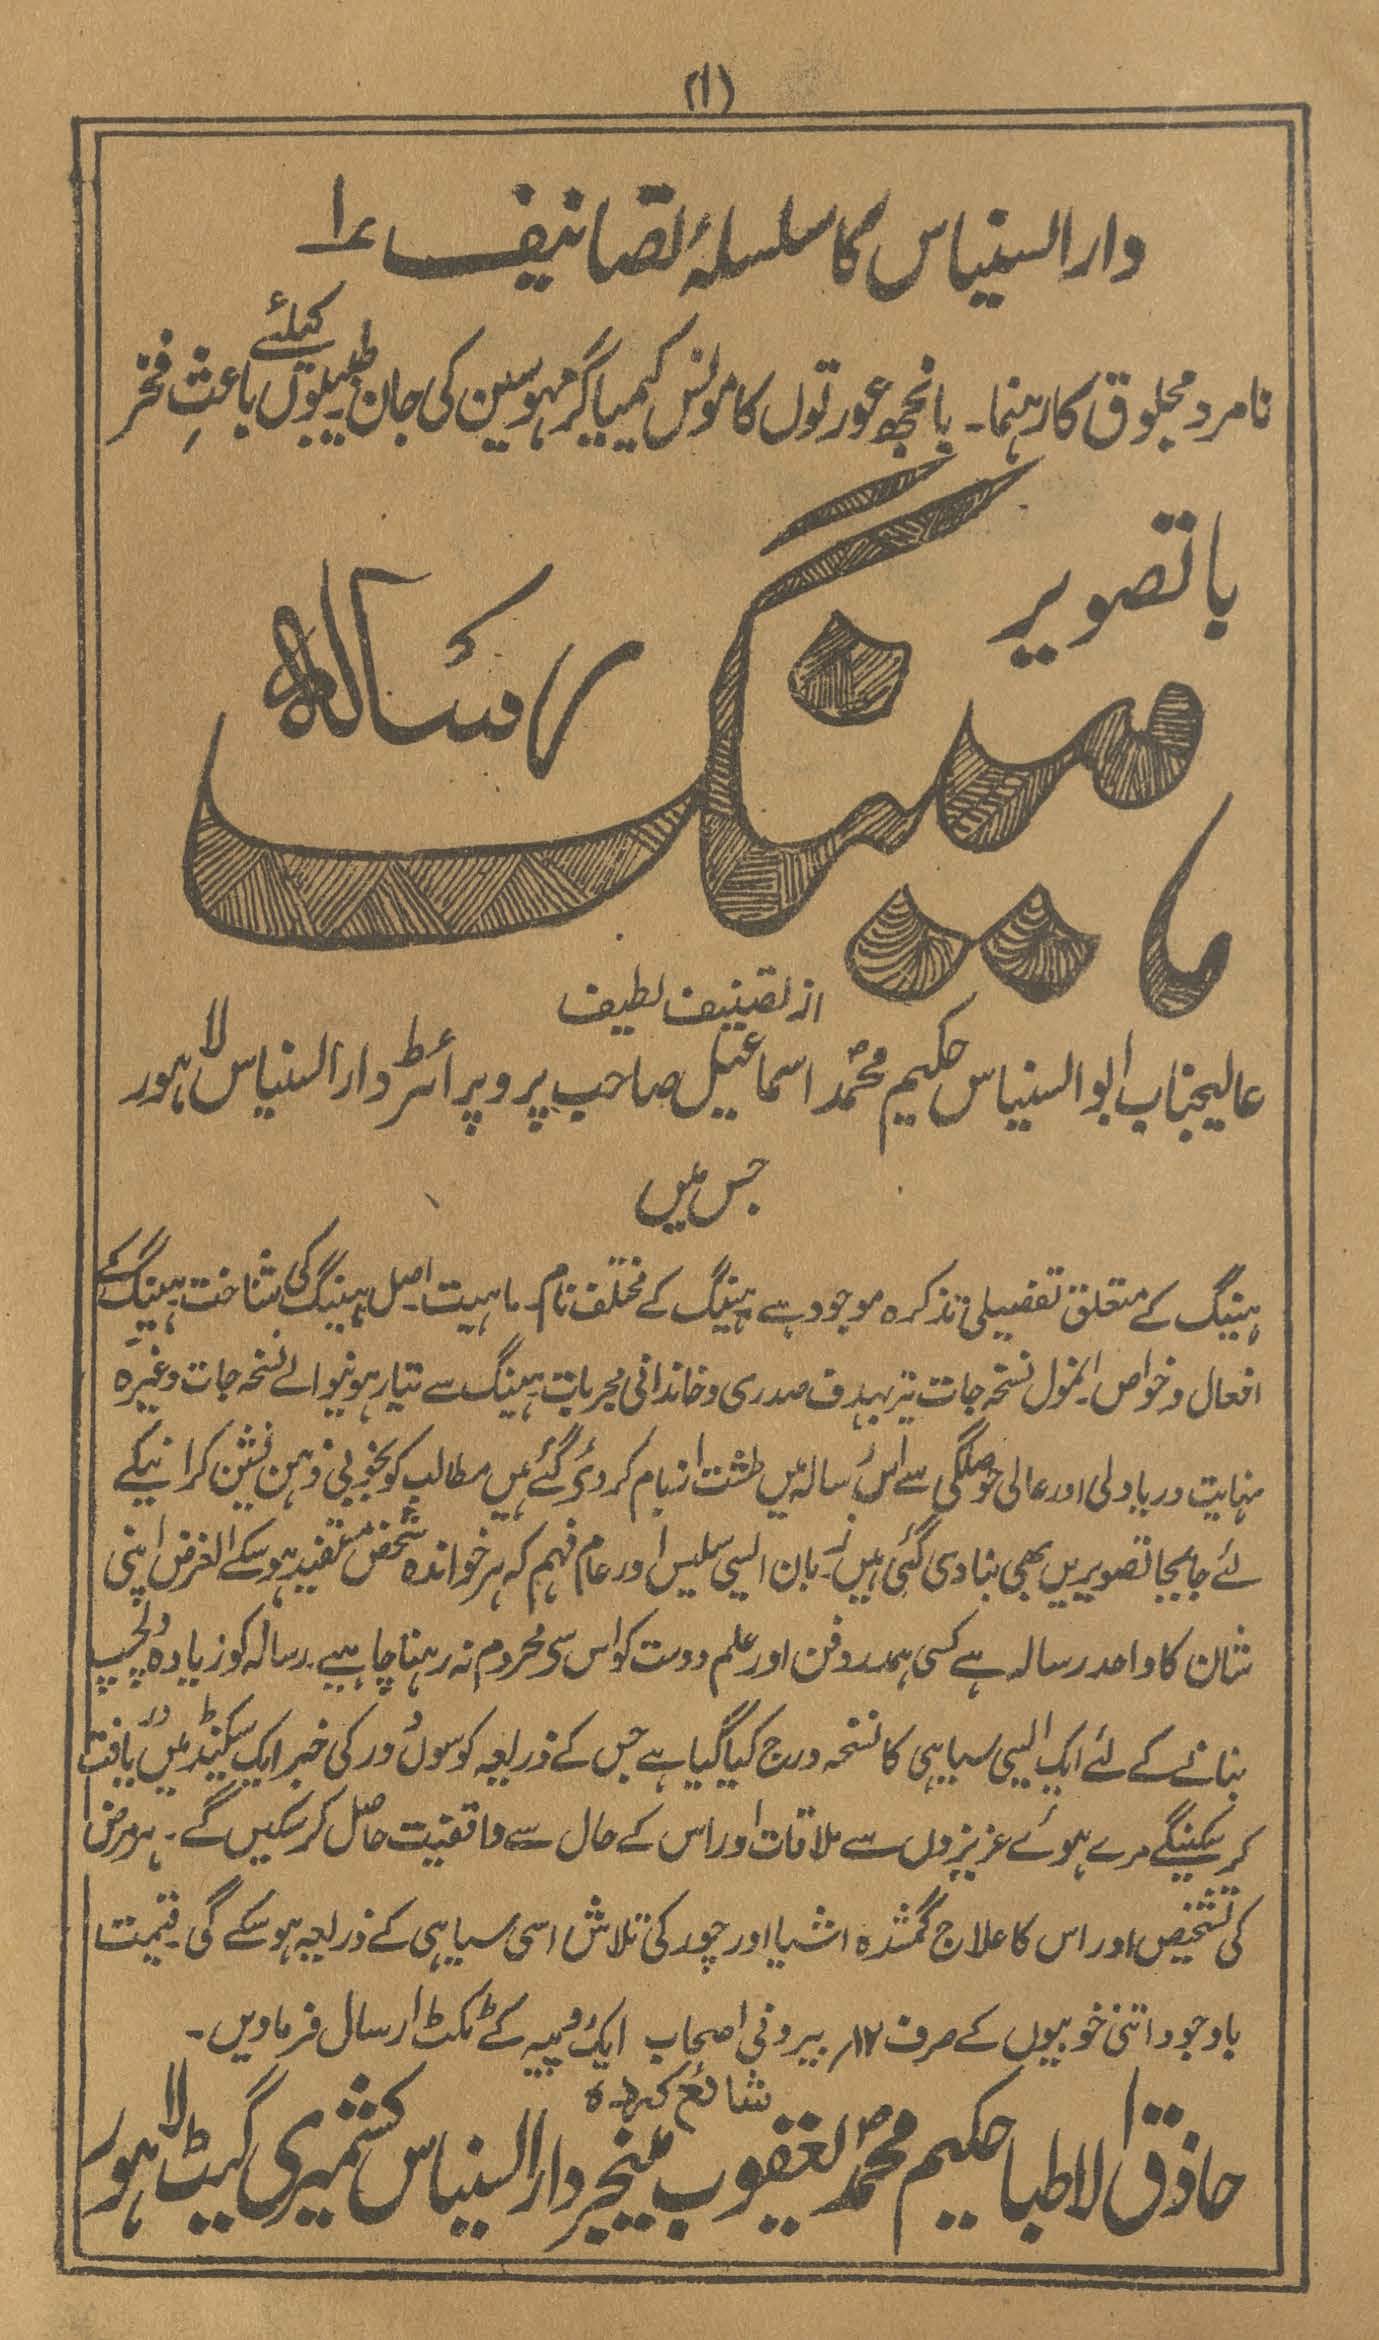 (۱)
دار السنیاس کا سلسلۂ تصانیف ۱
نامرد مجلوق کا رہنما۔ بانجھ عورتوں کا مونس کیمیاگر مہوسین کی جان طبیبوں کیلئے باعثِ فخر
باتصویر
رسالہ
ہینگ
از تصنیف لطیف
عالیجناب ابو السنیاس حکیم محمد اسماعیل صاحب پروپرائٹر دار السنیاس لاہور
جس میں
ہینگ کے متعلق تفصیلی تذکرہ موجود ہے ہینگ کے مختلف نام۔ ماہیت۔ اصل ہینگ کی شناخت ہینگ کے
افعال و خواص۔ انمول نسخہ جات تیر بہدف صدری و خاندانی مجربات ہینگ سے تیار ہونیوالے نسخہ جات وغیرہ
نہایت دریا دلی اور عالی حوصلگی سے اس رسالہ میں طشت از بام کر دئے گئے ہیں مطالب کو بخوبی ذہن نشین کرانیکے
لئے جابجا تصویریں بھی بنا دی گئی ہیں۔ زبان ایسی سلیس اور عام فہم کہ ہر خواندہ شخص مستفید ہو سکے الغرض اپنی
شان کا واحد رسالہ ہے کسی ہمدرد فن اور علم دوست کو اس سی محروم نہ رہنا چاہیے۔ رسالہ کو زیادہ دلچسپ
بنانے کے لئے ایک ایسی سیاہی کا نسخہ درج کیا گیا ہے جس کے ذریعہ کوسوں دور کی خبر ایک سیکنڈ میں دریافت
کر سکینگے مرے ہوئے عزیزوں سے ملاقات اور اس کے حال سے واقفیت حاصل کر سکیں گے۔ ہر مرض
کی تشخیص اور اس کا علاج گمشدہ اشیا اور چور کی تلاش اسی سیاہی کے ذریعہ ہو سکے گی۔ قیمت
باوجود اتنی خوبیوں کے صرف ۱۲؍ بیرونی اصحاب ایک روپیہ کے ٹکٹ ارسال فرماویں۔
شائع کردہ
حاذق الاطبا حکیم محمد یعقوب مینیجر دار السنیاس کشمیری گیٹ لاہور